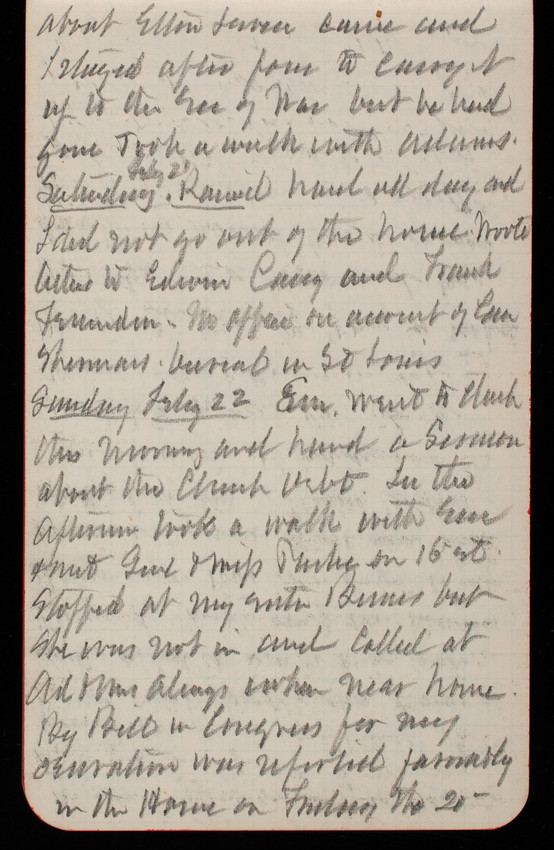 about came and
stayed after four to carry it
up to the Sec of War but he had
gone Took a walk with Adams.
Saturday Feby 21. Rained hard all day and
I did not go out of the house. Wrote
letters to Edwin Casey and Frank
Fessenden. No office on account of Gen
Shermans burial in St Louis
Sunday Feby 22 Em. went to Church
this morning and heard a Sermon
about the Church Debt. In the
Afternoon took a walk with
& met Genl & Miss on 16 st.
Stopped at my but
she was not in and called at
Ad & when near home.
My Bill in Congress for my
was reported favorably
in the House on the 20